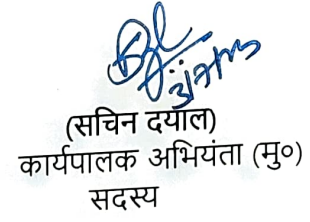 (सचिन दयाल)
कार्यपालक अभियंता (मु०)
सदस्य